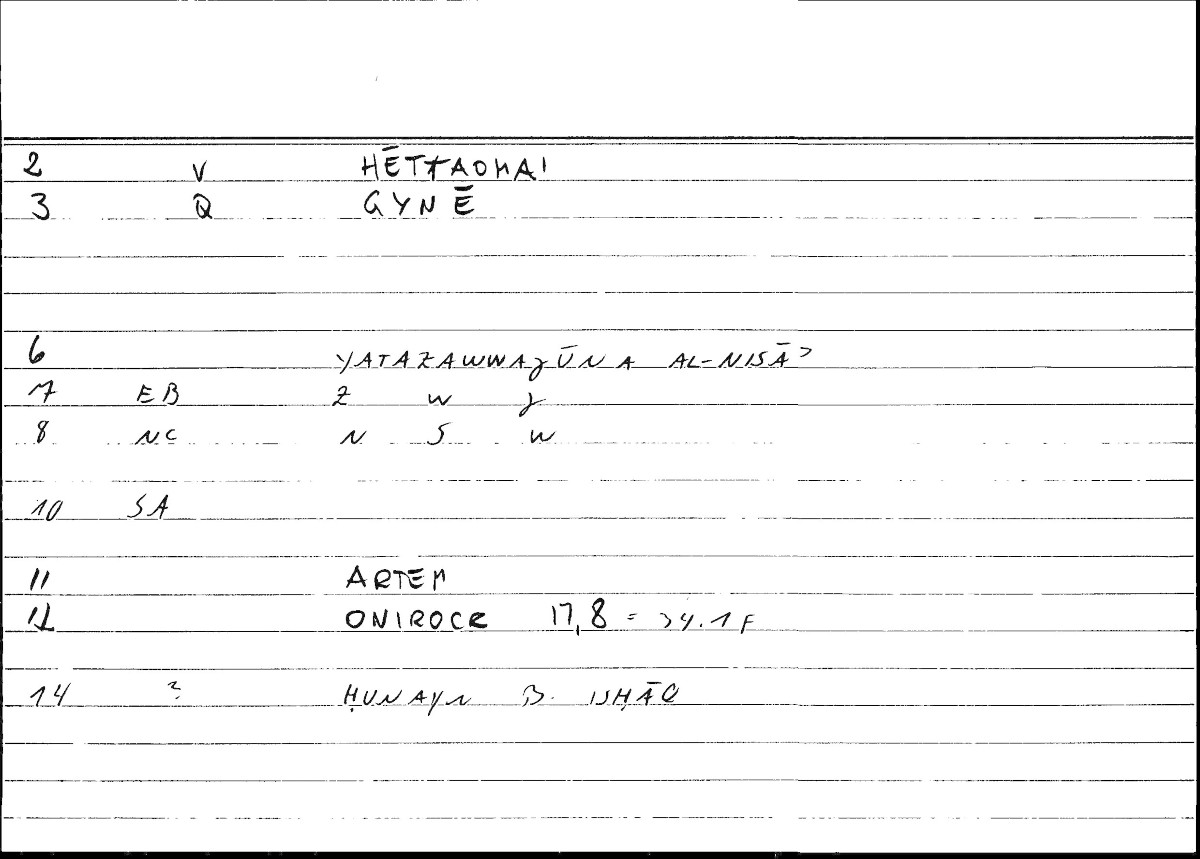 2 V HĒTTAOMAI
3 Q GYNĒ
6 YATAZAWWAǧŪNA AL-NISĀʾ
7 EB Z W ǧ
8 NC N S W
10 SA
11 ARTEM
12 ONIROCR 17,8 = 34.1 F
14 ? ḤUNAYN B. ISḤĀQ